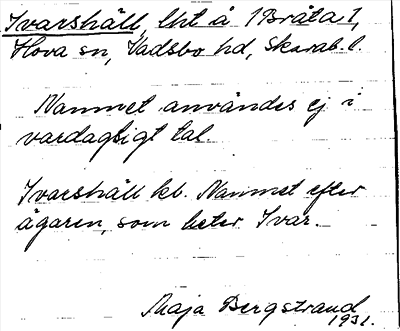 Ivarshäll, lht å 1 Bråta 1,
Hova sn, Vadsbo hd, Skarab. l.
Namnet användes ej i
vardagligt tal.
Ivarshäll kl. Namnet efter
ägaren, som heter Ivar.
Maja Bergstrand
1931.